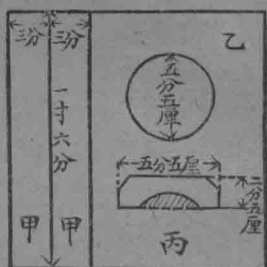 三分
三分
一寸六分
甲
甲
乙
五分五厘
五分五厘
二分五厘
丙